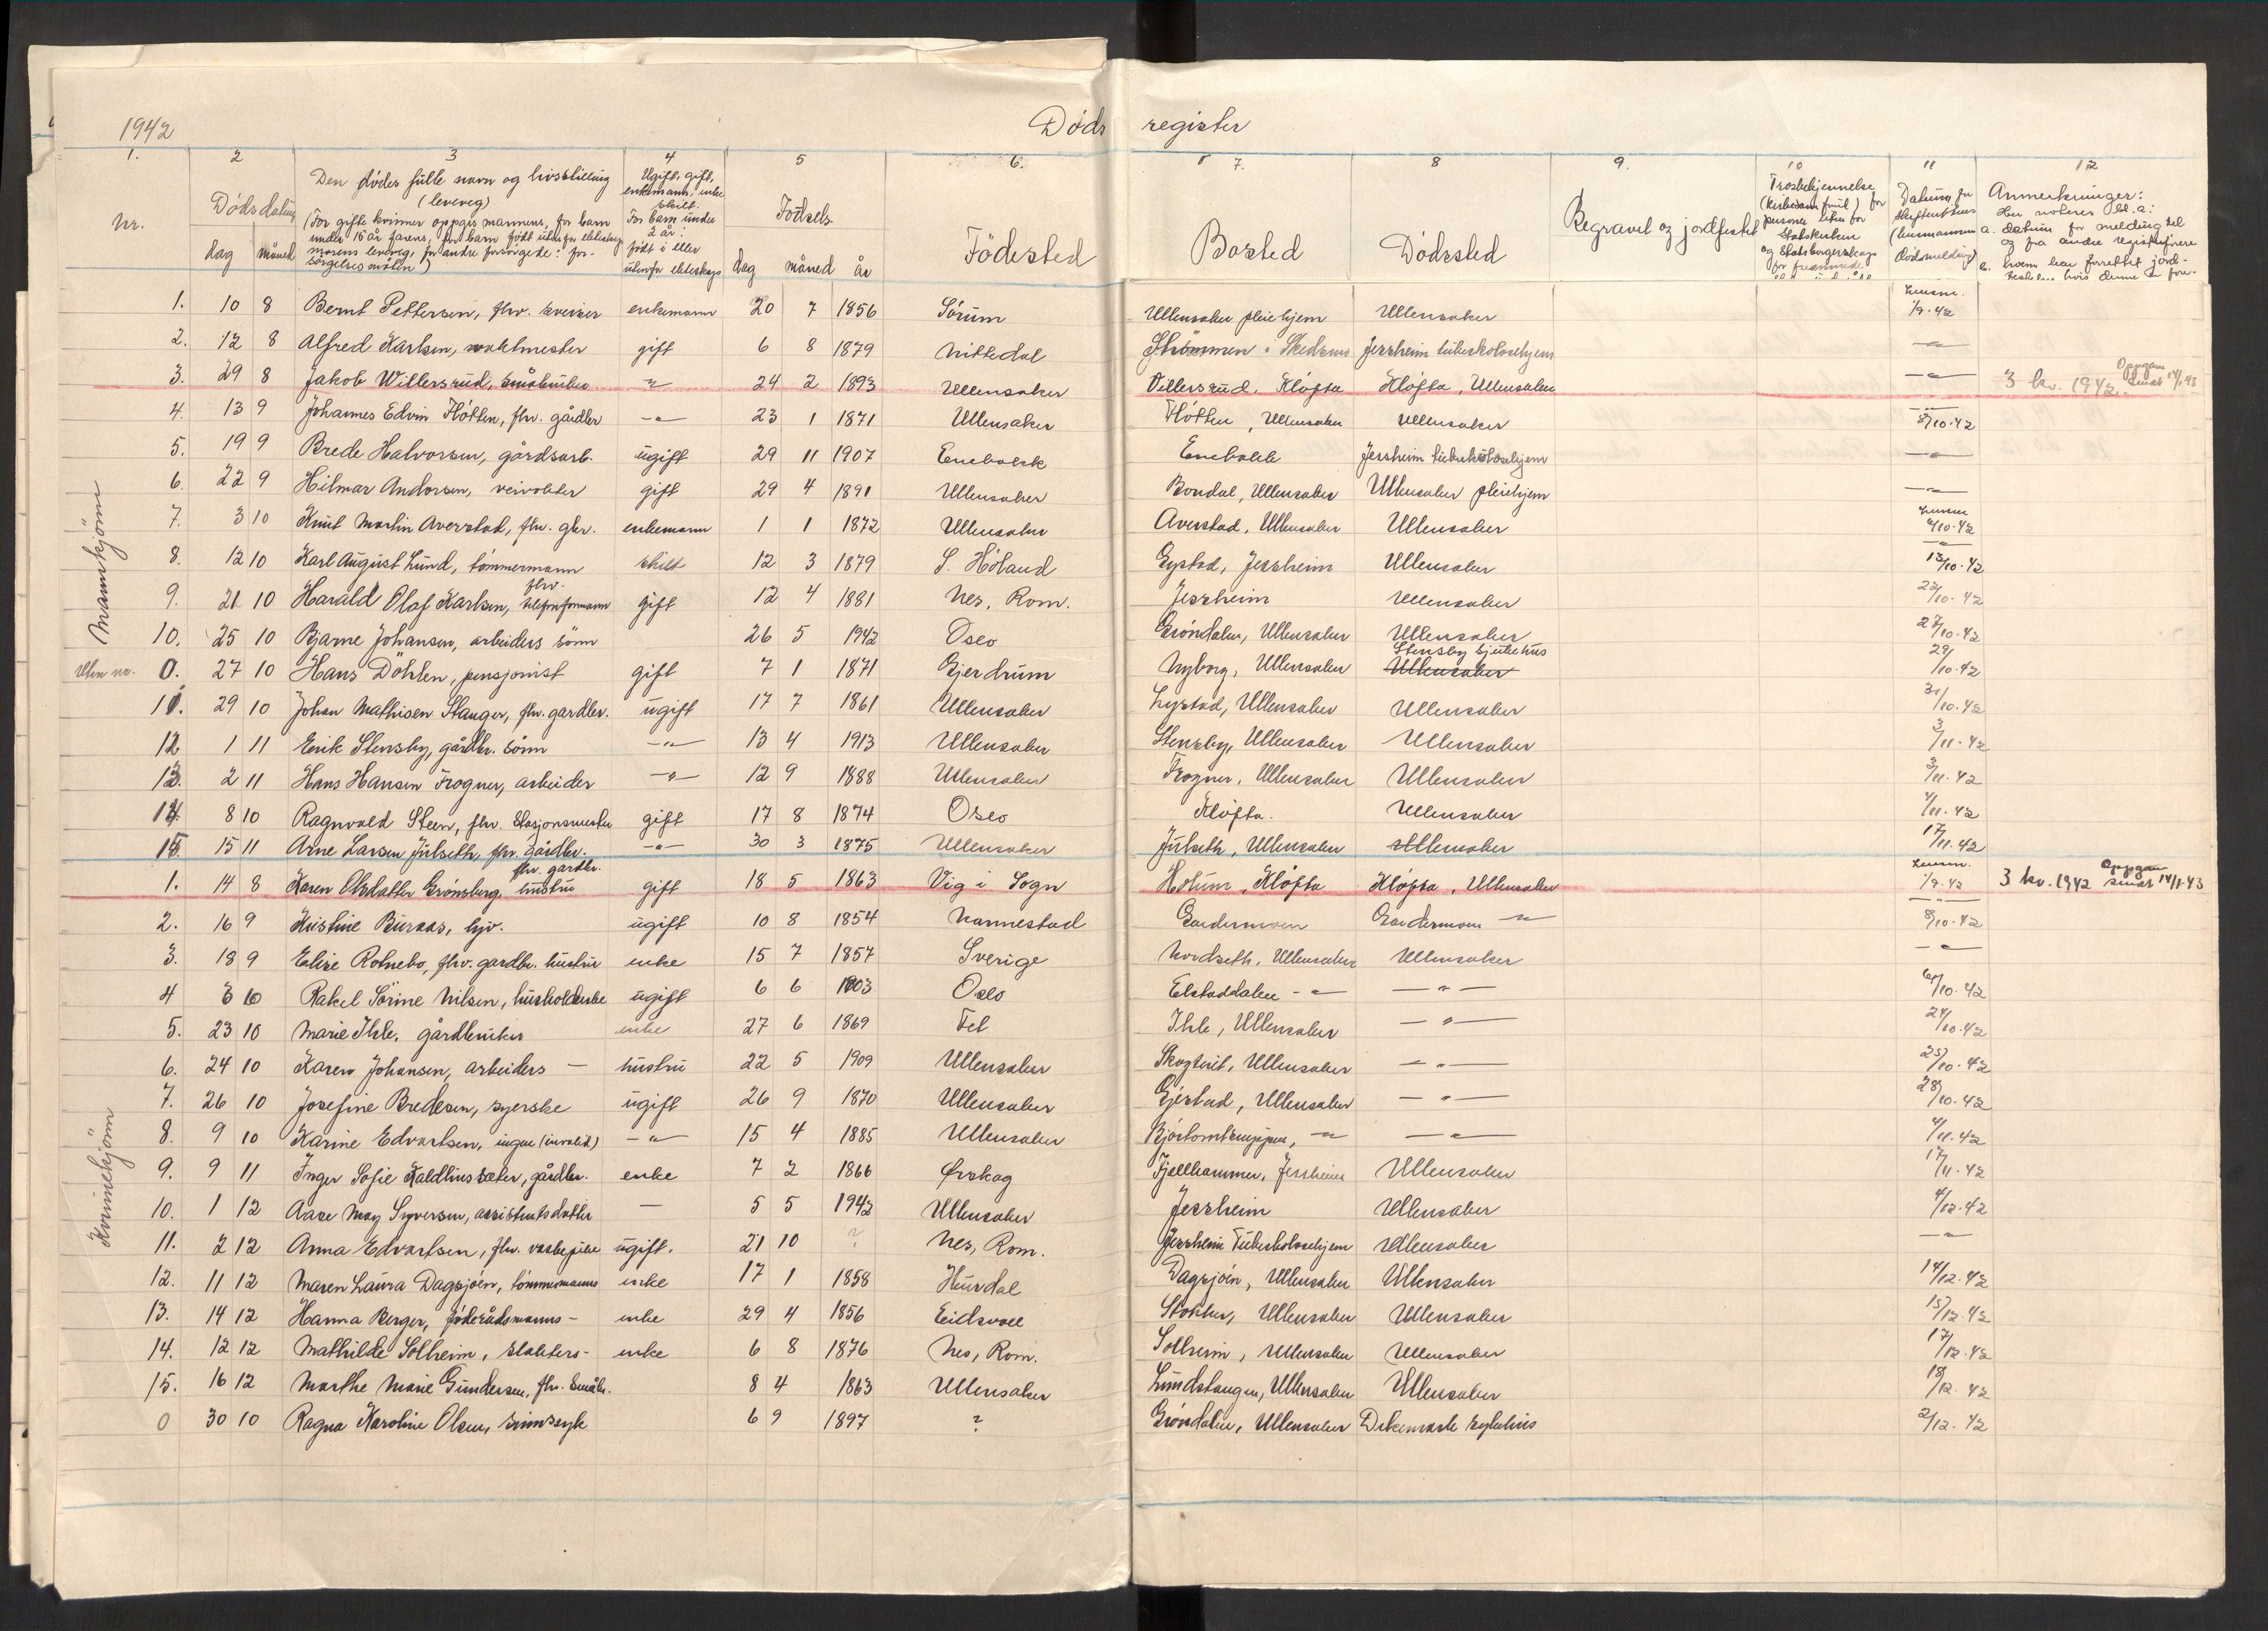 1942 Döds register
1. 2 3 4 5 6. 7. 8 9. 10 11 12
Nr. Dødsdatum dag måned
Den dödes fulle navn og livsstilling
(levevei)
(For gifte kvinner oppgis mannens, for barn
under 15 år farens, for barn födt utenfor ekteskap
morens levevei, for andre forsörgede: for-
sörgelsesmåten)
Ugift, gift,
enkemann, enke
skilt.
For barn under
2 år:
födt i eller
utenfor ekteskap
Födsels dag måned år
Födested
Bosted
Dödssted
Begravet og jordfestet
Trosbekjennelse
for
personer uten for
Statskirken
og Statsborgerskap
for fremmede
Datum for
skifterettens
(lensmannens
dödsmelding)
Anmerkninger:
Her noteres bl.a:
a. datum for melding til
og fra andre registerförere
hvem har forrettet jord-
hvis denne
Mannkjönn
1. 10 8 Bernt Pettersen, fhv. sveiser enkemann 20 7 1856 Sörum Ullensaker pleiehjem Ullensaker Lensm. 1/9-42
2. 12 8 Alfred Karlsen, vaktmester gift 6 8 1879 Nittedal Strömmen Skedsmo Jessheim tuberkulosehjem —"—
3. 29 8 Jakob Willersrud, småbruker —"— 24 2 1893 Ullensaker Villersrud, Klöfta Klöfta, Ullensaker —"— 3 kv. 1942. Oppgave sendt 14/1-43
4. 13 9 Johannes Edvin Flötten, fhv. gårdbr —"— 23 1 1871 Ullensaker Flötten, Ullensaker Ullensaker 8/10-42
5. 19 9 Brede Halvorsen, gårdsarb. ugift 29 11 1907 Enebakk Enebakk Jessheim tuberkulosehjem —"—
6. 22 9 Hilmar Andorsen, veivokter gift 29 4 1891 Ullensaker Bondal, Ullensaker Ullensaker pleiehjem —"—
7. 3 10 Knut Martin Averstad, fhv. gbr. enkemann 1 1 1872 Ullensaker Averstad, Ullensaker Ullensaker Lensm 6/10-42
8. 12 10 Karl August Lund, tömmermann skilt 12 3 1879 S. Höland Gystad, Jessheim Ullensaker —"— 13/10-42
9. 21 10 Harald Olaf Karlsen, fhv. telefonformann gift 12 4 1881 Nes, Rom. Jessheim Ullensaker 22/10-42
10. 25 10 Bjarne Johansen, arbeiders sönn 26 5 1942 Oslo Gröndalen, Ullensaker Ullensaker 27/10-42
Uten nr. 0. 27 10 Hans Döhlen, pensjonist gift 7 1 1871 Gjerdrum Nyborg, Ullensaker Stensby sjukehus Ullensaker 29/10-42
11. 29 10 Johan Mathisen Stanger, fhv. gardbr. ugift 17 7 1861 Ullensaker Lystad, Ullensaker Ullensaker 31/10-42
12 1 11 Erik Stensby, gårdbr. sönn —"— 13 4 1913 Ullensaker Stensby, Ullensaker Ullensaker 3/11-42
13. 2 11 Hans Hansen Frogner, arbeider —"— 12 9 1888 Ullensaker Frogner, Ullensaker Ullensaker 3/11-42
14. 8 10 Ragnvald Steen, fhv. Stasjonsmester gift 17 8 1874 Oslo Klöfta. Ullensaker 4/11-42
15. 15 11 Arne Larsen Julseth, fhv. gårdbr. —"— 30 3 1875 Ullensaker Julseth, Ullensaker Ullensaker 17/11-42
Kvinnekjönn
1. 14 8 Karen Olsdatter Grönsberg, fhv. gardbr. hustru gift 18 5 1863 Vig i Sogn Holum, Klöfta Klöfta, Ullensaker Lensm. 1/9-42 3 kv. 1942 Oppgave sendt 14/1-43
2. 16 9 Kristine Buraas, hjv. ugift 10 8 1854 Nannestad Gardermoen Gardermoen —"— 8/10-42
3. 18 9 Elise Rotnebo, fhv. gardbr. hustru enke 15 7 1857 Sverige Nordseth, Ullensaker Ullensaker —"—
4 6 10 Rakel Sörine Nilsen, husholderske ugift 6 6 1903 Oslo Elstaddalen —"— —"— 6/10-42
5. 23 10 Marie Ihle, gårdbruker enke 27 6 1869 Fet Ihle, Ullensaker —"— 24/10-42
6. 24 10 Karen Johansen, arbeiders — hustru 22 5 1909 Ullensaker Skogtvit, Ullensaker —"— 25/10-42
7. 26 10 Josefine Bredesen, syerske ugift 26 9 1870 Ullensaker Gjestad, Ullensaker —"— 28/10-42
8. 9 10 Karine Edvartsen, ingen (invalid) —"— 15 4 1885 Ullensaker —"— —"— 4/11-42
9. 9 11 Inger Sofie Kaldhussæter, gårdbr. enke 7 2 1866 Ørskog Fjellhammer, Jessheim Ullensaker 17/11-42
10. 1 12 Aase May Syversen, assistents datter — 5 5 1942 Ullensaker Jessheim Ullensaker 4/12-42
11. 2 12 Anna Edvartsen, fhv. vaskepike ugift. 21 10 ? Nes, Rom. Jessheim Tuberkulosehjem Ullensaker —"—
12. 11 12 Maren Laura Dagsjöen, tömmermanns enke 17 1 1858 Hurdal Dagsjöen, Ullensaker Ullensaker 14/12-42
13. 14 12 Hanna Berger, föderådsmanns - enke 29 4 1856 Eidsvoll Stokker, Ullensaker Ullensaker 15/12-42
14. 12 12 Mathilde Solheim, slakters - enke 6 8 1876 Nes, Rom. Solheim, Ullensaker Ullensaker 17/12-42
15. 16 12 Marthe Marie Gundersen, fhv. småbr. 8 4 1863 Ullensaker Lundstangen, Ullensaker Ullensaker 18/12-42
0 30 10 Ragna Karoline Olsen, sinnssyk 6 9 1897 ? Gröndalen, Ullensaker Dikemark sykehus 2/12-42